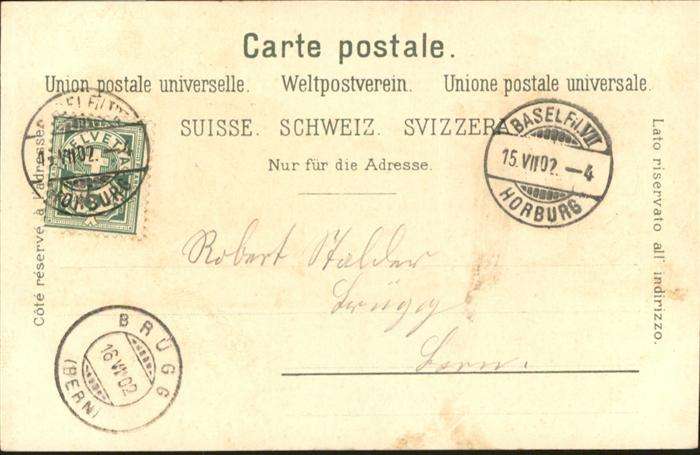 Carte postale.
Union postale universelle. Weltpostverein. Unione postale universale.
SUISSE. SCHWEIZ. SVIZZERA
Nur für die Adresse.
Côté réservé à l'adresse
Lato riservato all' indirizzo.
HELVETIA
15.VII.02.
HORBURG
BASEL Fil. VII
15.VII.02.-4
HORBURG
Robert Stalder
Brügg
Bern.
BRÜGG
16.VII.02
(BERN)